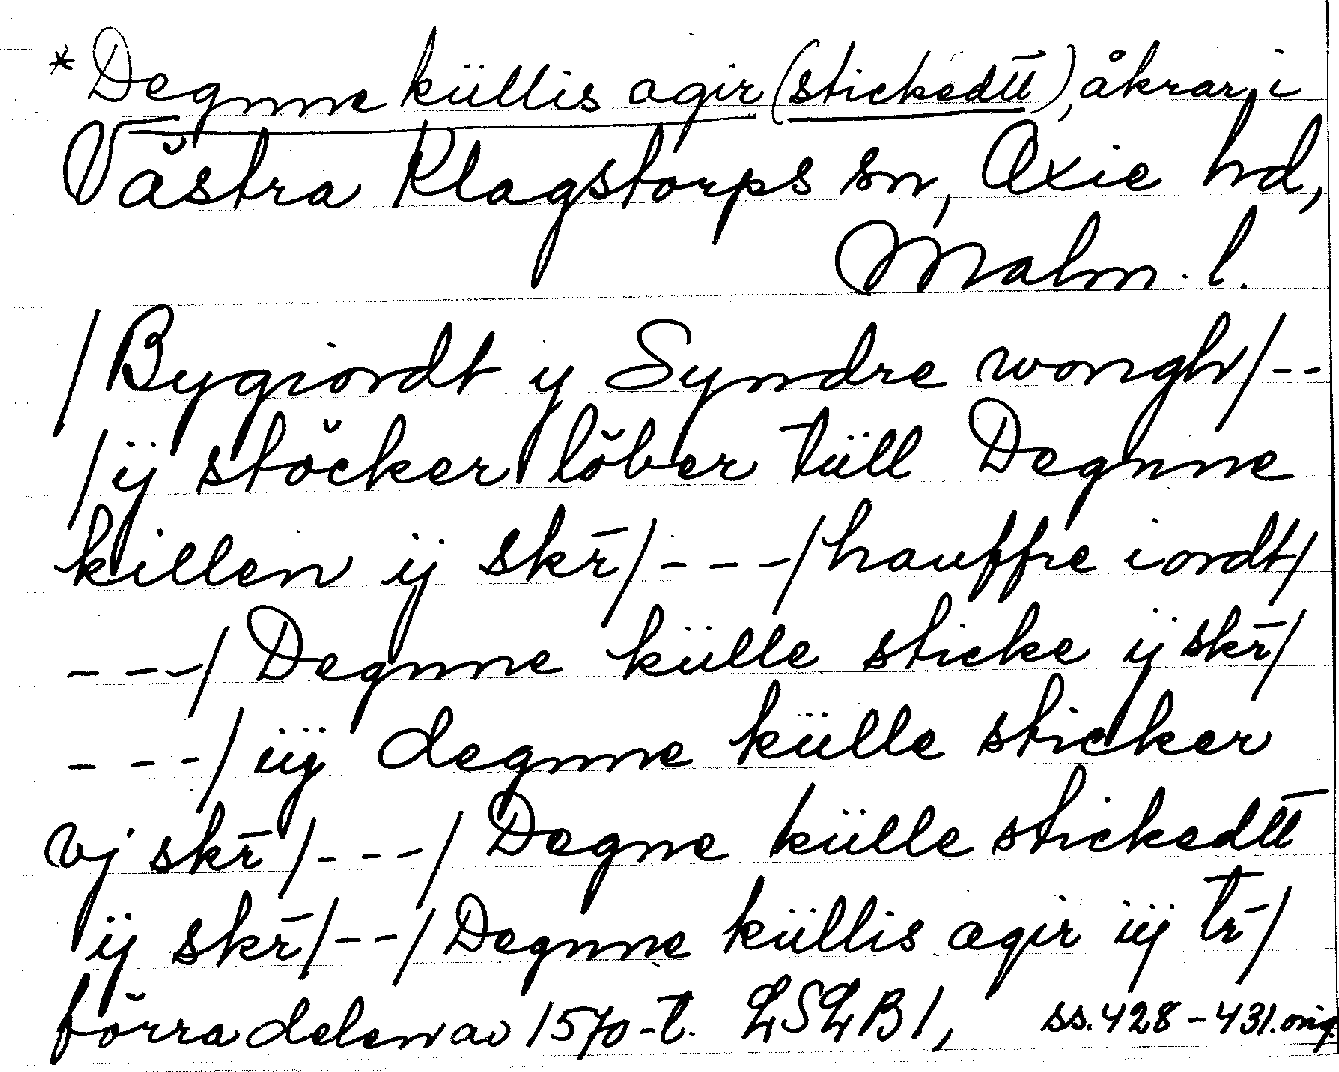 *Degnne küllis agir (stickedtt), åkrar i
Västra Klagstorps sn, Oxie hd,
Malm. l.
/Bygiordt y Syndre wongh/--
/ij stöcker löber tüll Degnne
killen ij skr̄/---/hauffre iordt/
---/Degnne külle sticke ij skr̄/
---/iij degnne külle sticker
vj skr̄/---/Degne külle stickedtt
ij skr̄/--/Degnne küllis agir iij tr̄/
förra delen av 1570-t. LSLB1, ss. 428-431. orig.